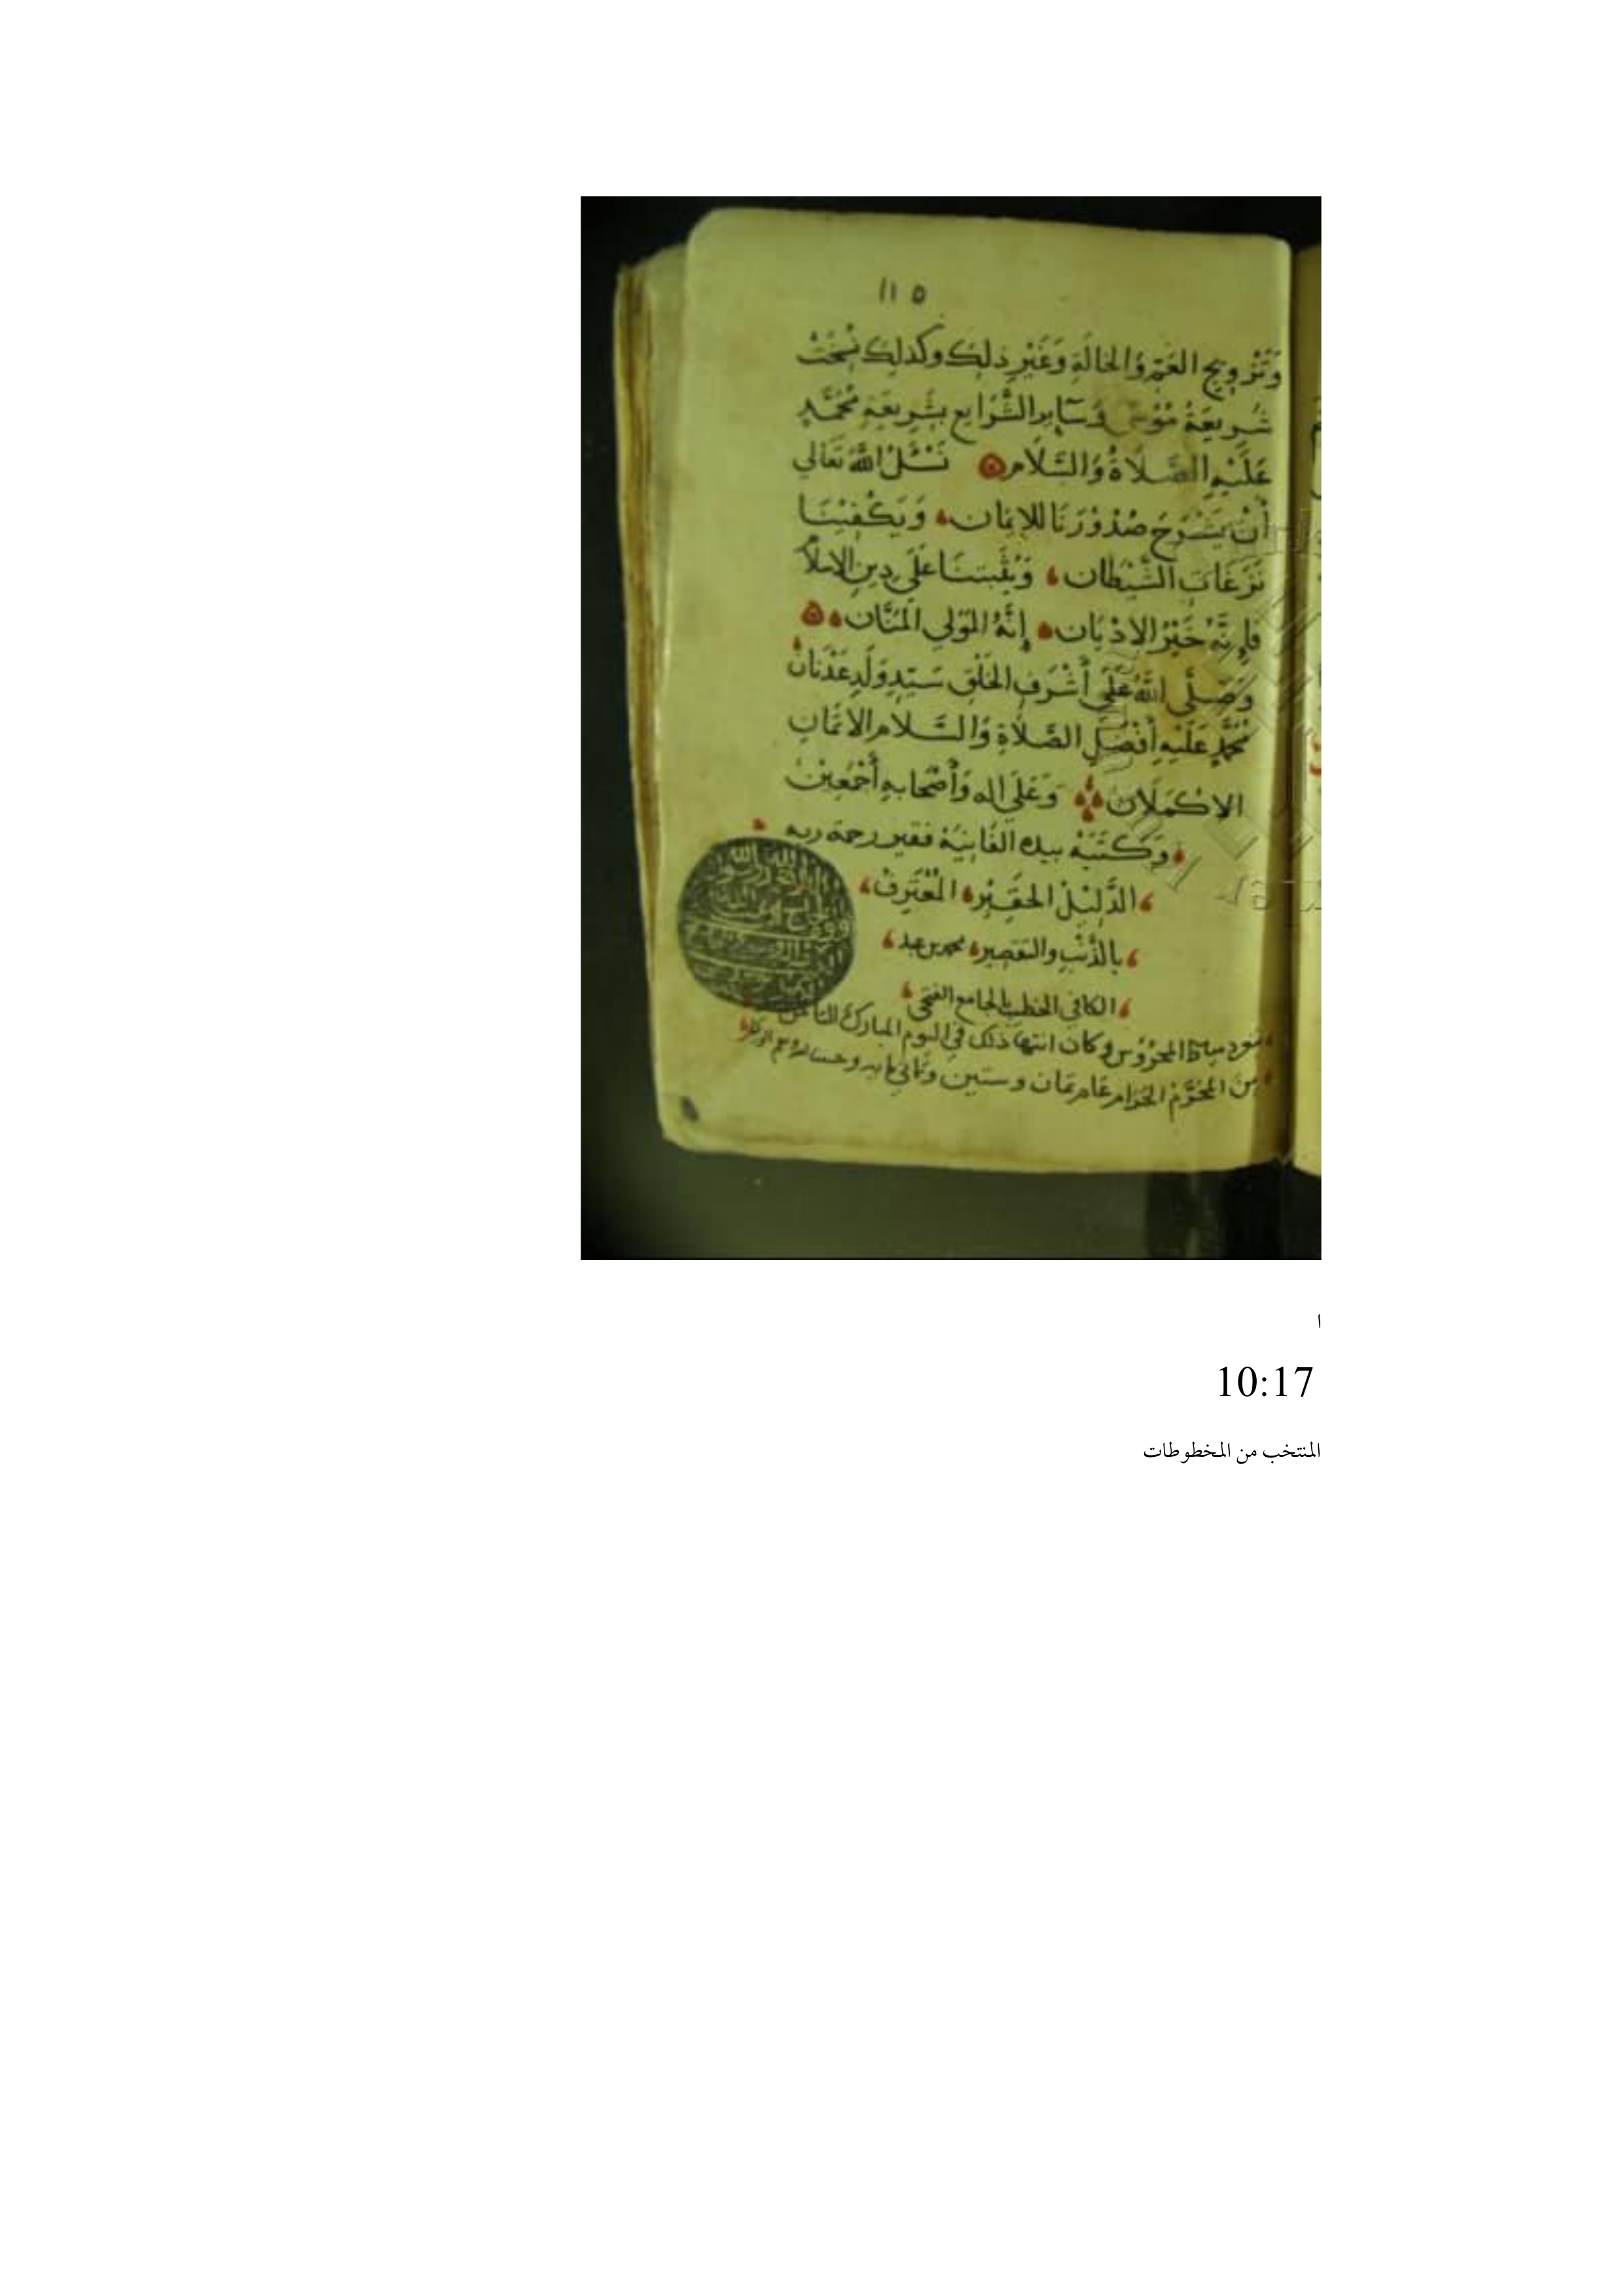 ١١٥
وَتَزْوِيجِ العَمَّةِ وَالخالَةِ وَغَيْرِ ذلِكَ وكَذلِكَ نُسِخَتْ
شَرِيعَةُ مُوْسَى وَسَايِرِ الشَّرَايِعِ بِشَرِيعَةِ مُحَمَّدٍ
عَلَيْهِ الصَّلَاةُ وَالسَّلَام نَسْئَلُ اللَّهَ تَعَالي
أَنْ يَشْرَحَ صُدُوْرَنَا للايمَان وَيَكْفِيْنَا
نَزَغَاتِ الشَّيْطان وَيُثَبِتَنَا عَلَى دِينِ الاسلامِ
فَإِنَّهُ خَيْرُ الادْيَان إِنَّهُ المَوْلِي المَنَّان
وَصَلَّى اللَّهُ عَلَى أَشْرَفِ الخَلْقِ سَيِّدِ وَلَدِ عَدْنَان
مُحَمَّدٍ عَلَيْهِ أَفْضَلُ الصَّلَاةِ وَالسَّلَامِ الاتمَّانِ
الاكْمَلَان وَعَلَى اله وَأَصْحَابِهِ أَجْمَعِيْن
وَكَتَبَهُ بيده الفَانِيَة فقير رحمة ربه
الذَّلِيْلُ الحَقِيْر المُعْتَرِفْ
بالذَّنْبِ والتقصير محمد بن عبد
الكافي الخطيب بالجامع الفتحى
المحرُوْس وكان انتها ذلك في اليوم المبارك الثامن
مِنَ المُحَرَّمْ الحَرَام عَام ثمان وستين وثماني مايه
ا
10:17
المنتخب من المخطوطات